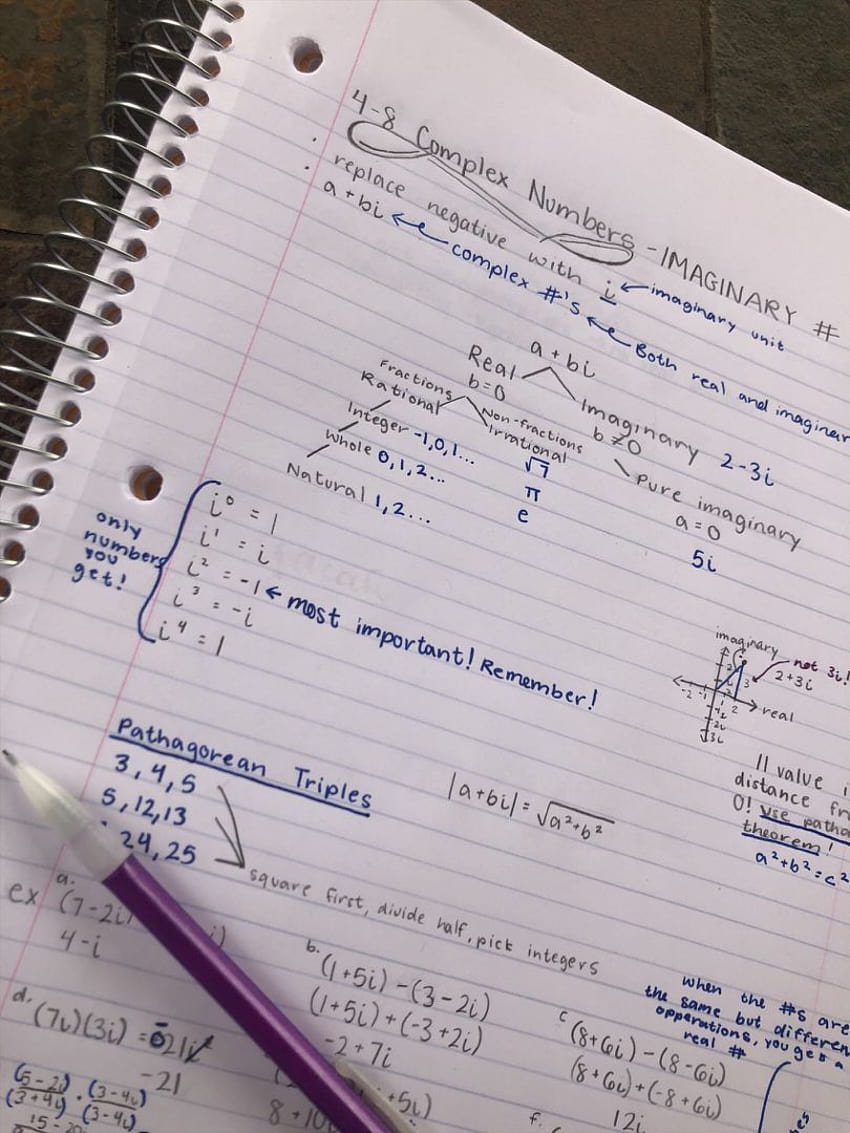 4-8 Complex Numbers - IMAGINARY #
· replace negative with i ← imaginary unit
· a + bi ← complex #'s ← Both real and imaginary
a + bi
Real
b=0
Imaginary
b ≠ 0
2-3i
Fractions
Rational
Non-fractions
Irrational
√7
π
e
Integer -1,0,1...
Whole 0,1,2...
Natural 1,2...
Pure imaginary
a = 0
5i
only
numbers
you
get!
i⁰ = 1
i¹ = i
i² = -1 ← most important! Remember!
i³ = -i
i⁴ = 1
imaginary
not 3i!
2+3i
real
Pathagorean Triples
3, 4, 5
5, 12, 13
24, 25
square first, divide half, pick integers
|a+bi| = √a²+b²
|| value i
distance
0! use
theorem!
a²+b²=c²
ex
a.
(7-2i)
4-i
b.
(1+5i) - (3-2i)
(1+5i) + (-3+2i)
-2+7i
when the #s are
the same but
opperations, you get a
real #
c
(8+6i) - (8-6i)
(8+6i) + (-8+6i)
12i
d.
(7i)(3i) = 21i²
-21
(5-2i) · (3-4i)
(3+4i) (3-4i)
+5i)
f.